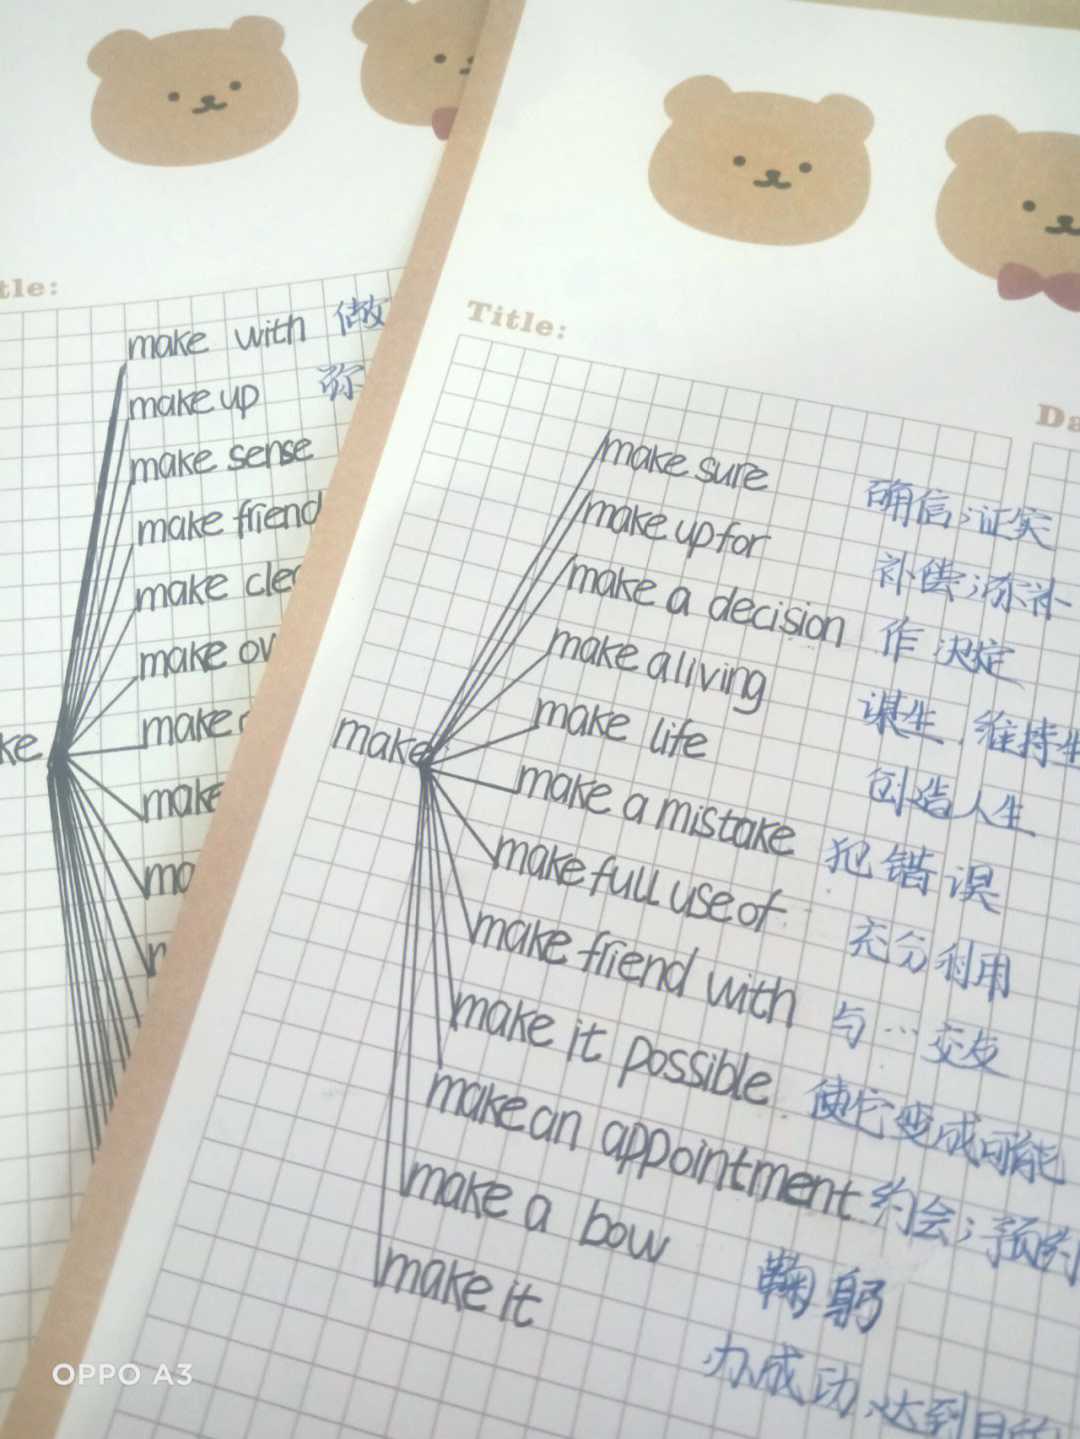 tle:
make with 做
make up 弥
make sense
make friend
make cle
make ov
make
ke
make
ma
Title:
Da
make sure 确信;证实
make up for 补偿;弥补
make a decision 作决定
make a living 谋生、维持生
make
make life 创造人生
make a mistake 犯错误
make full use of 充分利用
make friend with 与…交友
make it possible 使它变成可能
make an appointment 约会;预约
make a bow 鞠躬
make it 办成功、达到目的
OPPO A3